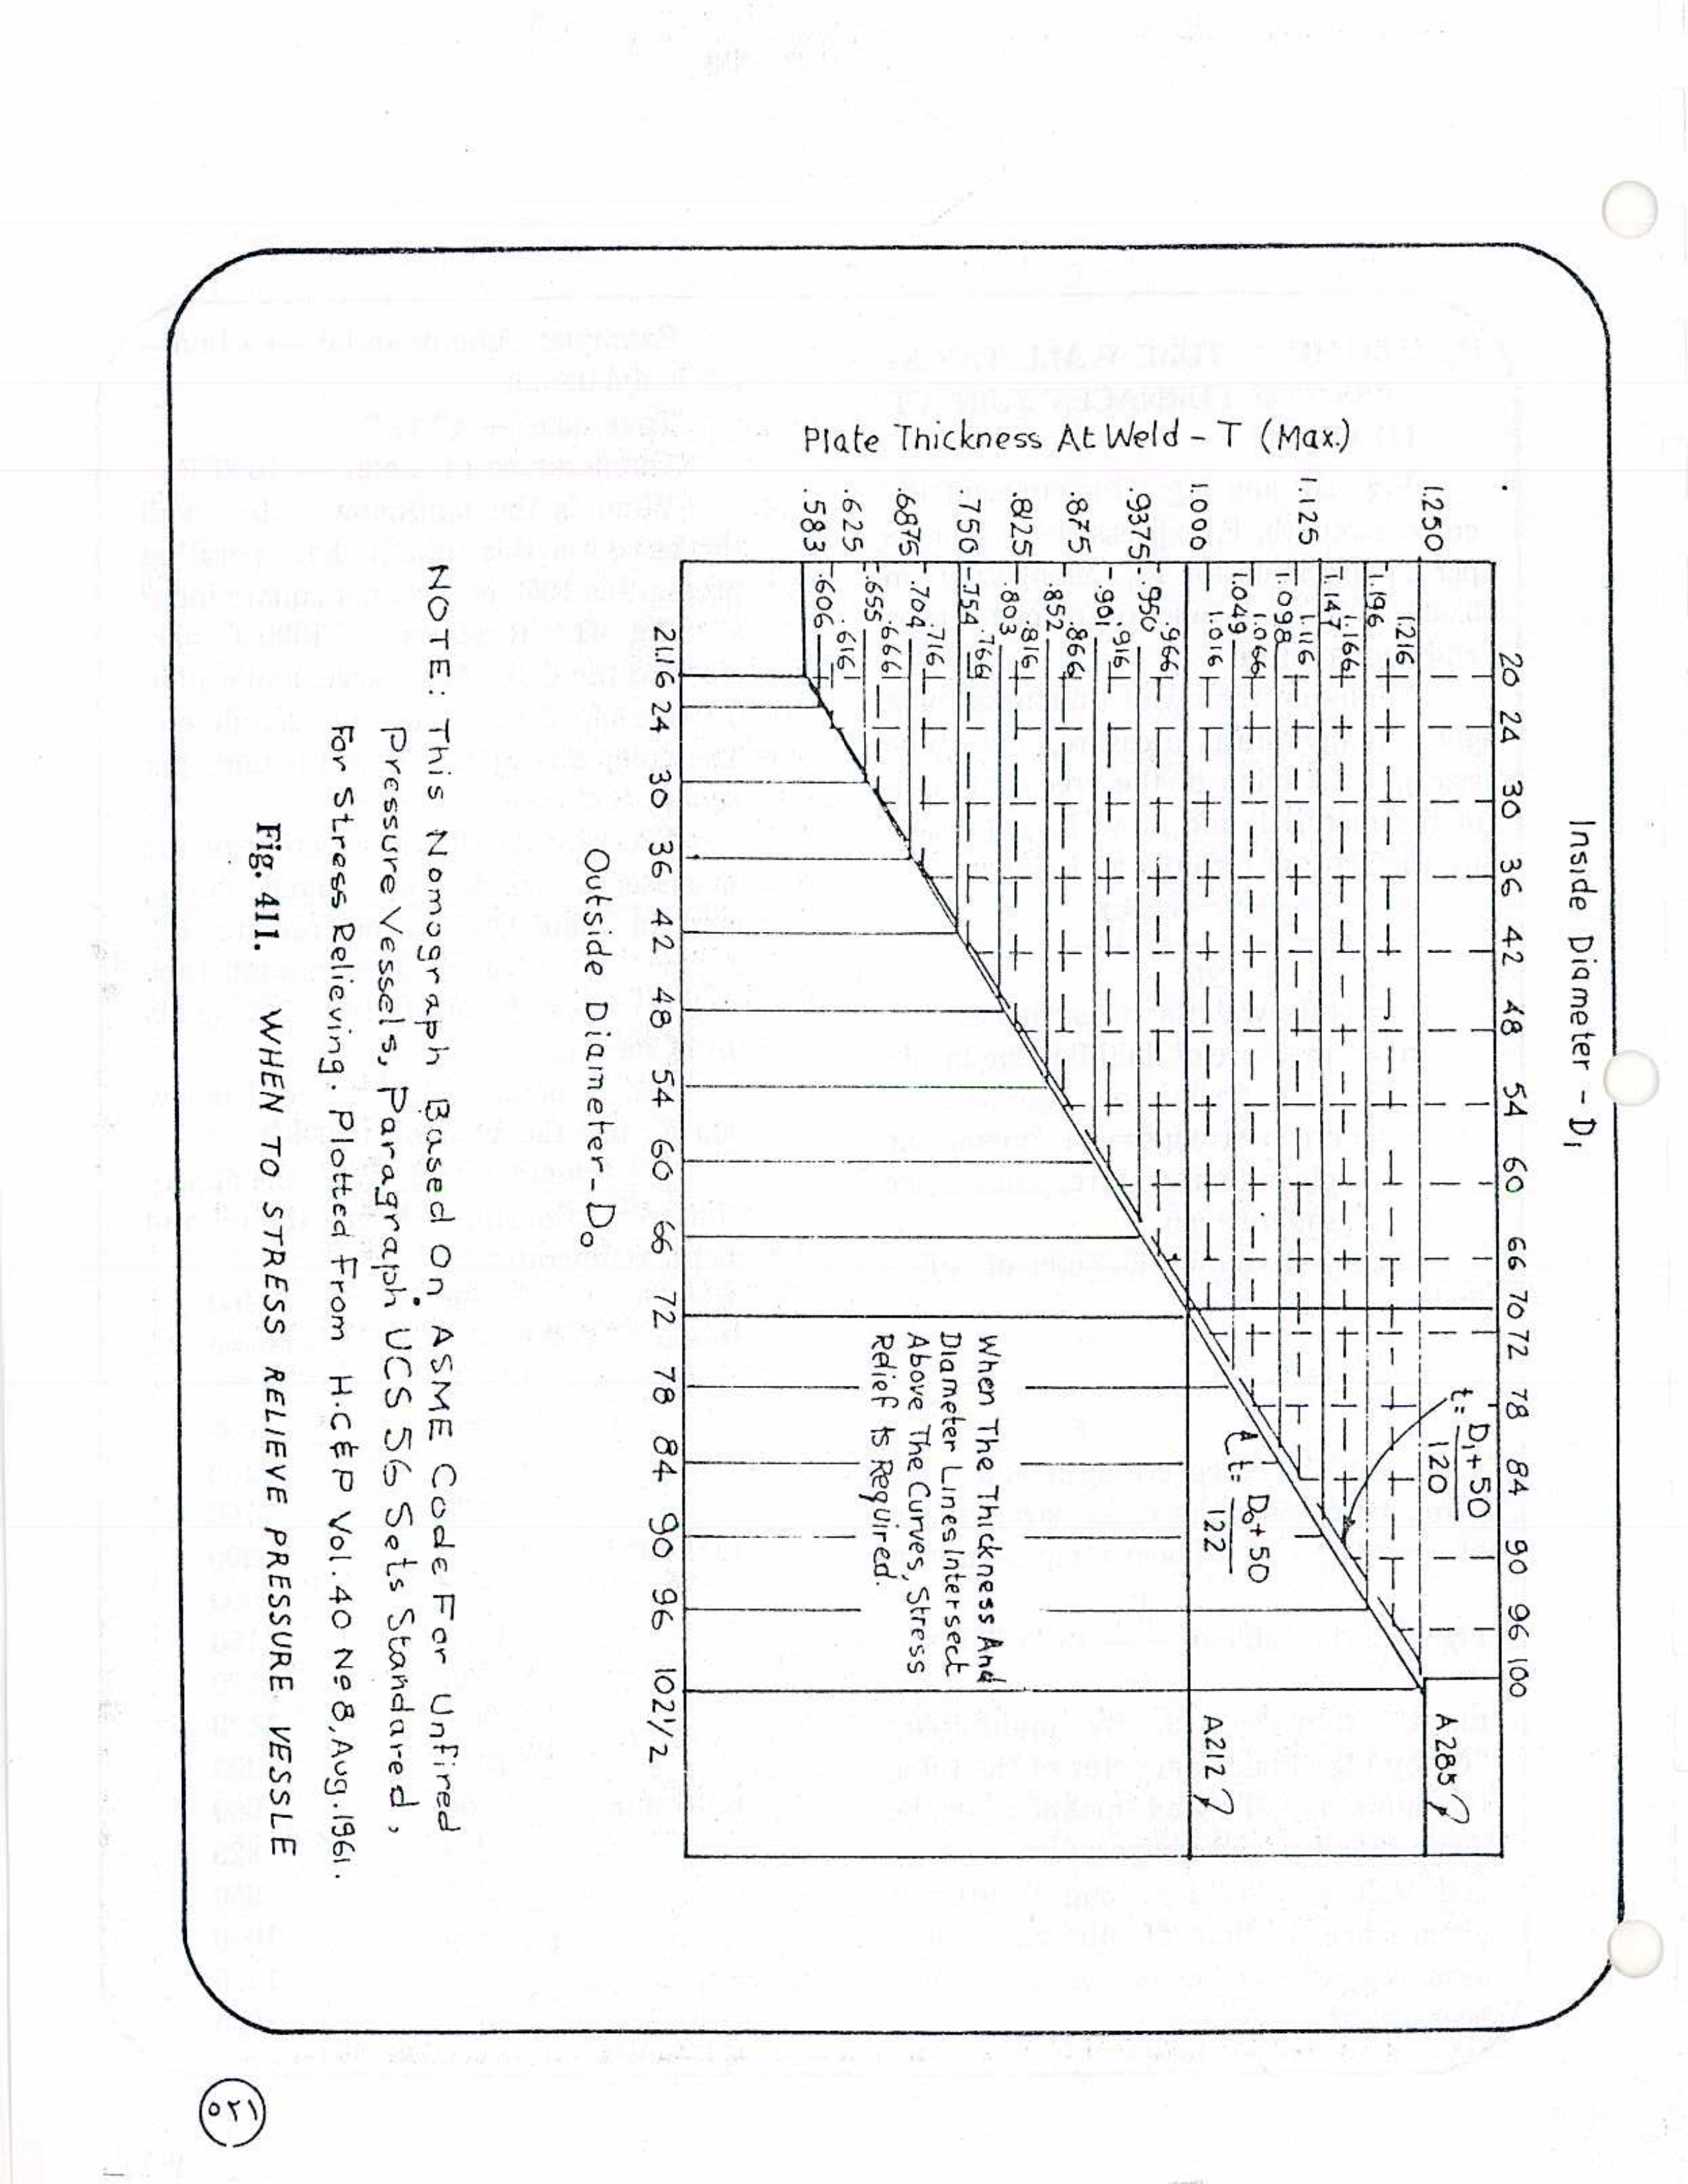 Inside Diameter - D₁
20 24 30 36 42 48 54 60 66 70 72 78 84 90 96 100
Plate Thickness At Weld - T (Max.)
1.250
1.125
1.000
.9375
.875
.8125
.750
.6875
.625
.583
1.216
1.196
1.166
1.147
1.116
1.098
1.066
1.049
1.016
.966
.950
.916
.901
.866
.852
.816
.803
.766
.754
.716
.704
.666
.655
.616
.606
t = D₁+50
120
A285
A212
t = D₀+50
122
When The Thickness And
Diameter Lines Intersect
Above The Curves, Stress
Relief is Required.
21.16 24 30 36 42 48 54 60 66 72 78 84 90 96 102½
Outside Diameter - D₀
NOTE: This Nomograph Based On ASME Code For Unfired
Pressure Vessels, Paragraph UCS 56 Sets Standared,
For Stress Relieving. Plotted From H.C&P Vol. 40 Nº 8, Aug. 1961.
Fig. 411. WHEN TO STRESS RELIEVE PRESSURE VESSLE